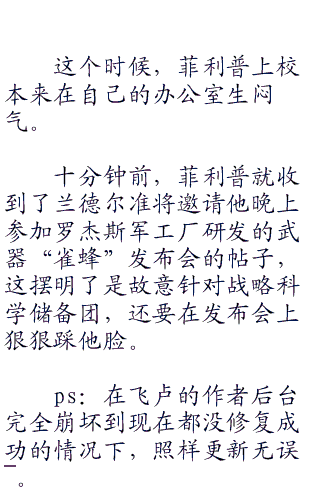 这个时候，菲利普上校
本来在自己的办公室生闷
气。
十分钟前，菲利普就收
到了兰德尔准将邀请他晚上
参加罗杰斯军工厂研发的武
器“雀蜂”发布会的帖子，
这摆明了是故意针对战略科
学储备团，还要在发布会上
狠狠踩他脸。
ps：在飞卢的作者后台
完全崩坏到现在都没修复成
功的情况下，照样更新无误
。